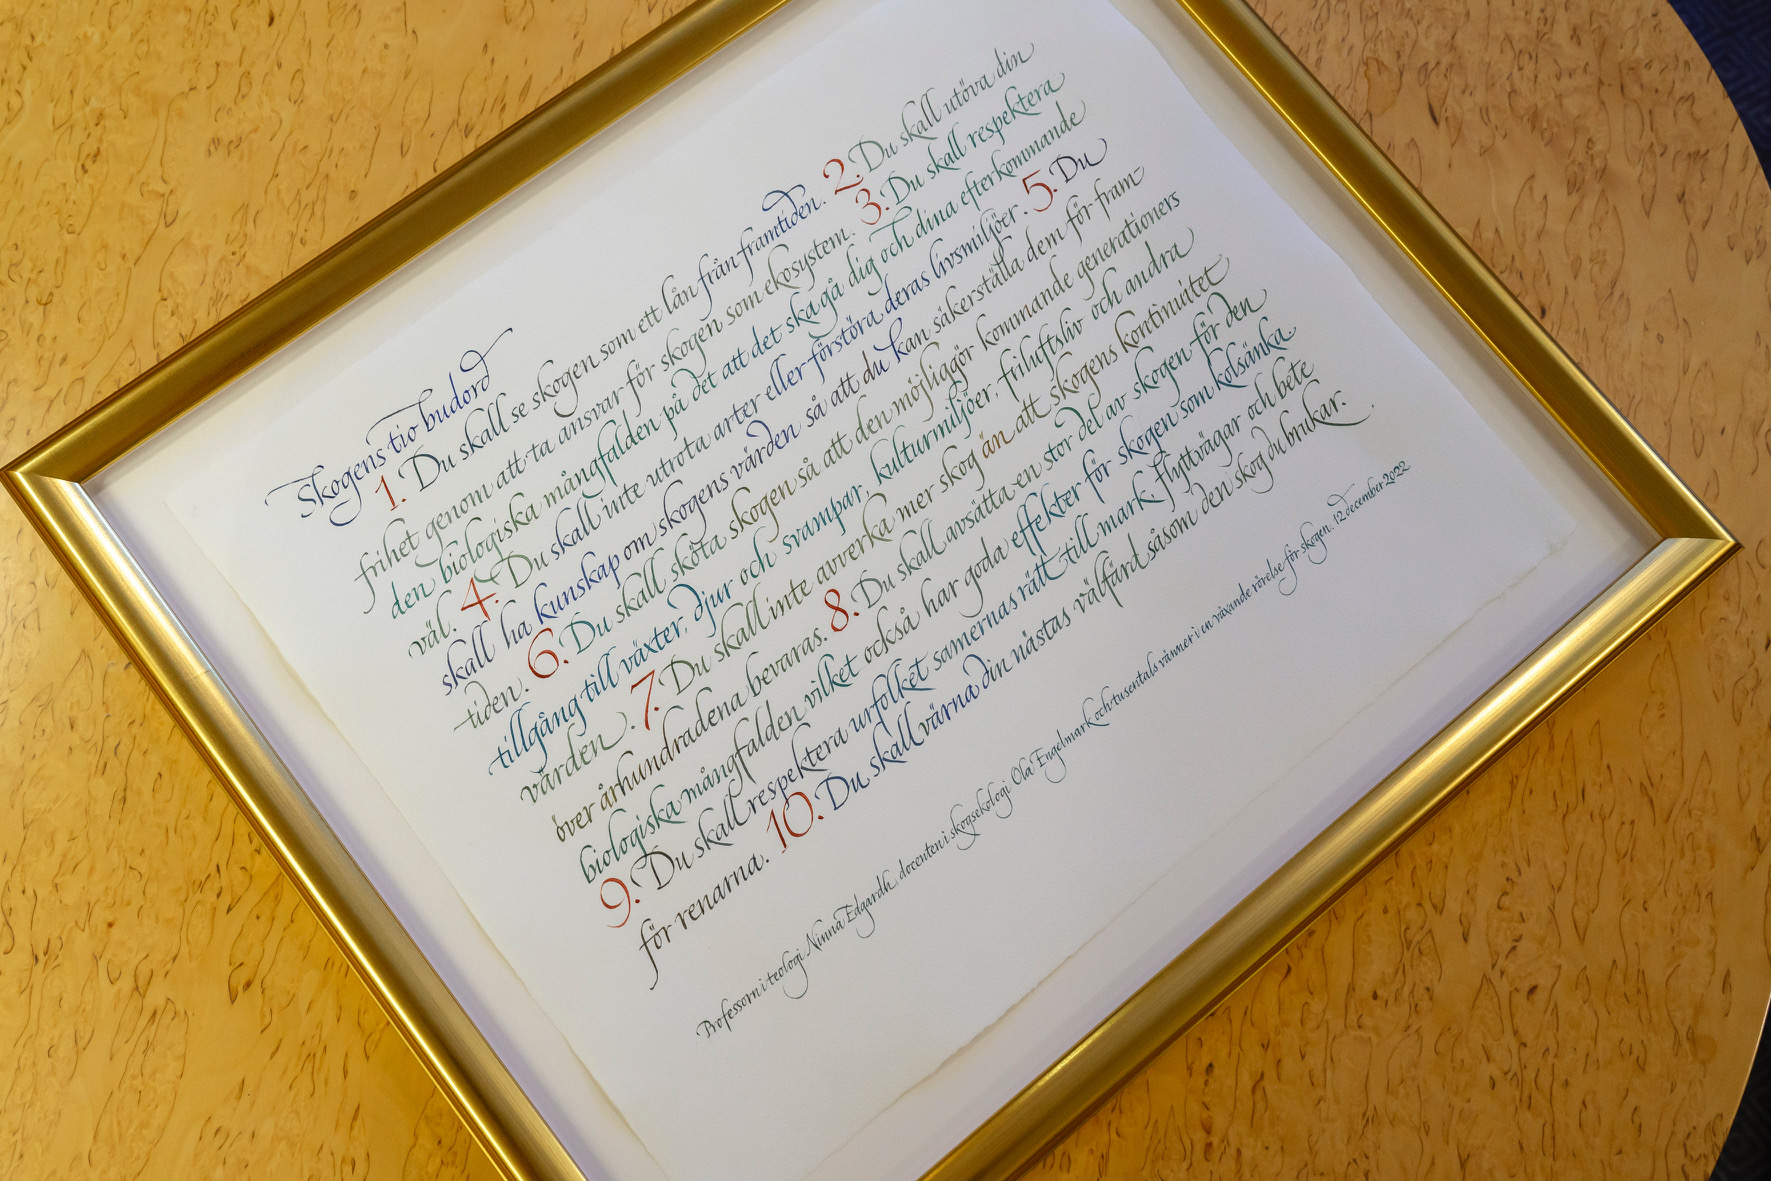 Skogens tio budord
1. Du skall se skogen som ett lån från framtiden. 2. Du skall utöva din
frihet genom att ta ansvar för skogen som ekosystem. 3. Du skall respektera
den biologiska mångfalden på det att det ska gå dig och dina efterkommande
väl. 4. Du skall inte utrota arter eller förstöra deras livsmiljöer. 5. Du
skall ha kunskap om skogens värden så att du kan säkerställa dem för fram
tiden. 6. Du skall sköta skogen så att den möjliggör kommande generationers
tillgång till växter, djur och svampar, kulturmiljöer, friluftsliv och andra
värden. 7. Du skall inte avverka mer skog än att skogens kontinuitet
över århundradena bevaras. 8. Du skall avsätta en stor del av skogen för den
biologiska mångfalden vilket också har goda effekter för skogen som kolsänka.
9. Du skall respektera urfolket samernas rätt till mark, flyttvägar och bete
för renarna. 10. Du skall värna din nästas välfärd såsom den skog du brukar.
Professorn i teologi Ninna Edgardh, docenten i skogsekologi Ola Engelmark och tusentals vänner i en växande rörelse för skogen. 12 december 2022